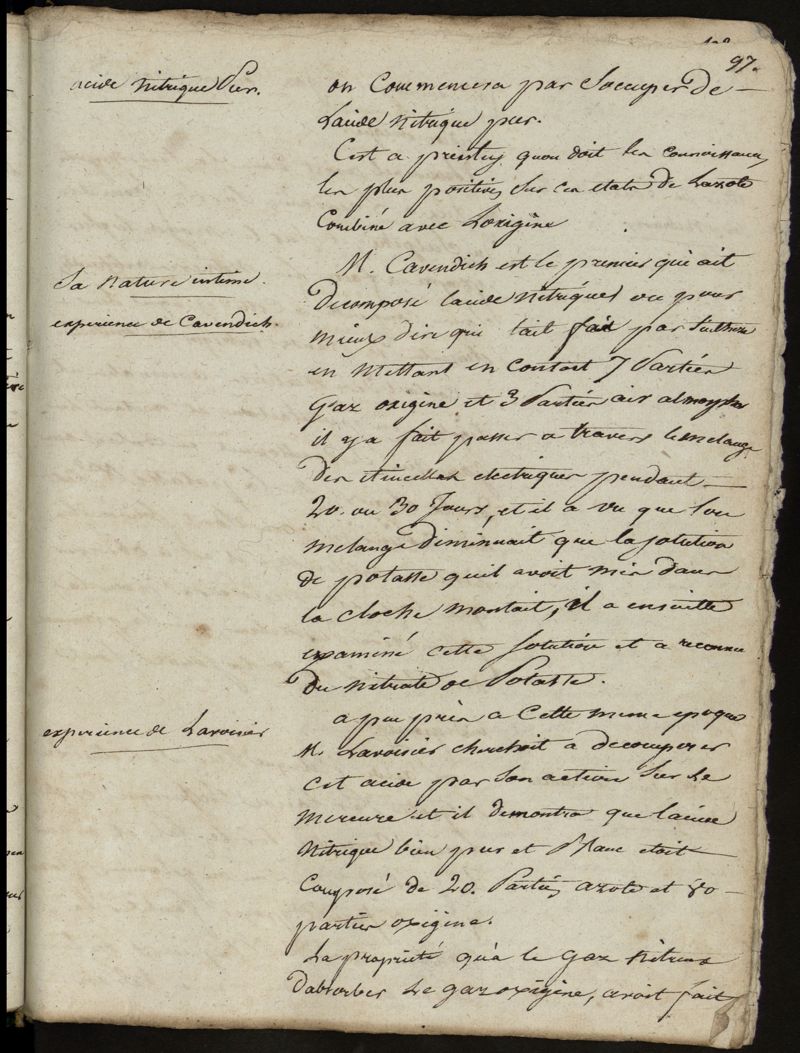 97.
acide nitrique Pur.
on Commencera par Soccuper de
Lacide nitrique pur.
C'est a priestley quon doit les connoissances
les plus positives Sur ces etats de Lazote
Combiné avec Loxigène
Sa nature intime.
M. Cavendich est le premier qui ait
experience de Cavendich.
Decomposé lacide nitrique ou pour
mieux dire qui lait fait par Sinthese
en Mettant en Contact 7 Parties
Gaz oxigène et 3 Parties air atmospher
il y a fait passer a travers le melange
des etincelles electriques pendant
20. ou 30 Jours, et il a vu que Son
melange diminuait que la solution
de potasse quil avoit mis dans
la cloche montait, il a ensuitte
examiné cette Solution et a reconnu
du nitrate de Potasse.
experience de Lavoisier
a peu près a Cette meme epoque
M. Lavoisier cherchoit a decomposer
cet acide par Son action Sur le
mercure et il demontra que lacide
nitrique bien pur et Blanc etoit
Composé de 20. Parties azote et 80
parties oxigène.
La propriété qu'a le Gaz nitreux
d'absorber le gaz oxigène, avoit fait